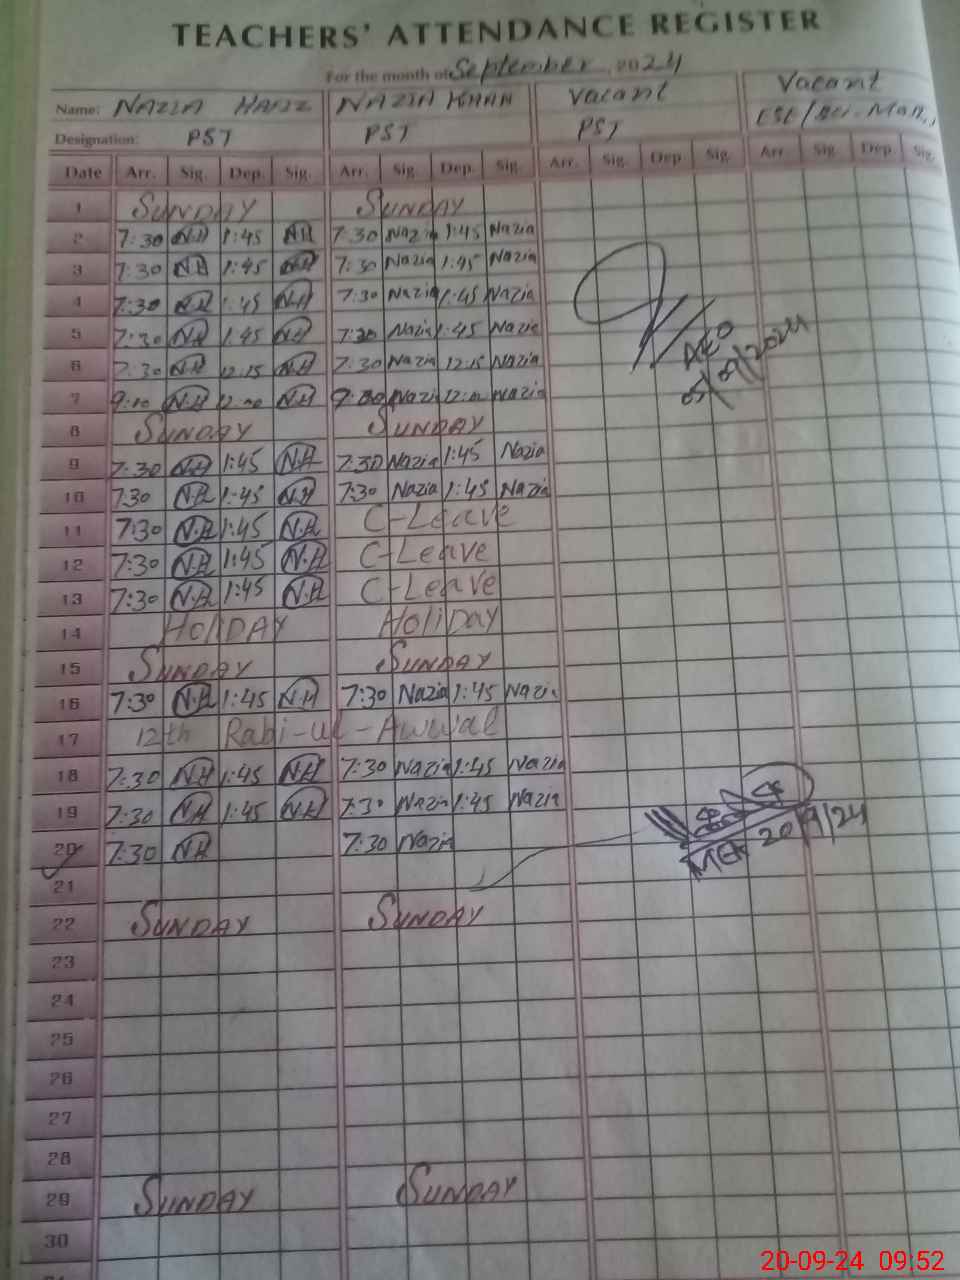 TEACHERS' ATTENDANCE REGISTER
For the month of September, 2024
Name: NAZIA HAFIZ NAZIA KHAN Vacant Vacant
Designation: PST PST PST ESE/Sci. Math,
Date Arr. Sig. Dep. Sig. Arr. Sig. Dep. Sig. Arr. Sig. Dep. Sig. Arr. Sig. Dep. Sig.
1 SUNDAY SUNDAY
2 7:30 N.H 1:45 N.H 7:30 Nazia 1:45 Nazia
3 7:30 N.H 1:45 N.H 7:30 Nazia 1:45 Nazia
4 7:30 N.H 1:45 N.H 7:30 Nazia 1:45 Nazia
5 7:30 N.H 1:45 N.H 7:30 Nazia 1:45 Nazia
AEO
05/09/2024
6 7:30 N.H 12:15 N.H 7:30 Nazia 12:15 Nazia
7 9:00 N.H 12:00 N.H 9:00 Nazia 12:00 Nazia
8 SUNDAY SUNDAY
9 7:30 N.H 1:45 N.H 7:30 Nazia 1:45 Nazia
10 7:30 N.H 1:45 N.H 7:30 Nazia 1:45 Nazia
11 7:30 N.H 1:45 N.H C-Leave
12 7:30 N.H 1:45 N.H C-Leave
13 7:30 N.H 1:45 N.H C-Leave
14 HOLIDAY HOLIDAY
15 SUNDAY SUNDAY
16 7:30 N.H 1:45 N.H 7:30 Nazia 1:45 Nazia
17 12th Rabi-ul-Awwal
18 7:30 N.H 1:45 N.H 7:30 Nazia 1:45 Nazia
19 7:30 N.H 1:45 N.H 7:30 Nazia 1:45 Nazia
20 7:30 N.H 7:30 Nazia
MEA 20/9/24
21
22 SUNDAY SUNDAY
23
24
25
26
27
28
29 SUNDAY SUNDAY
30
20-09-24 09:52